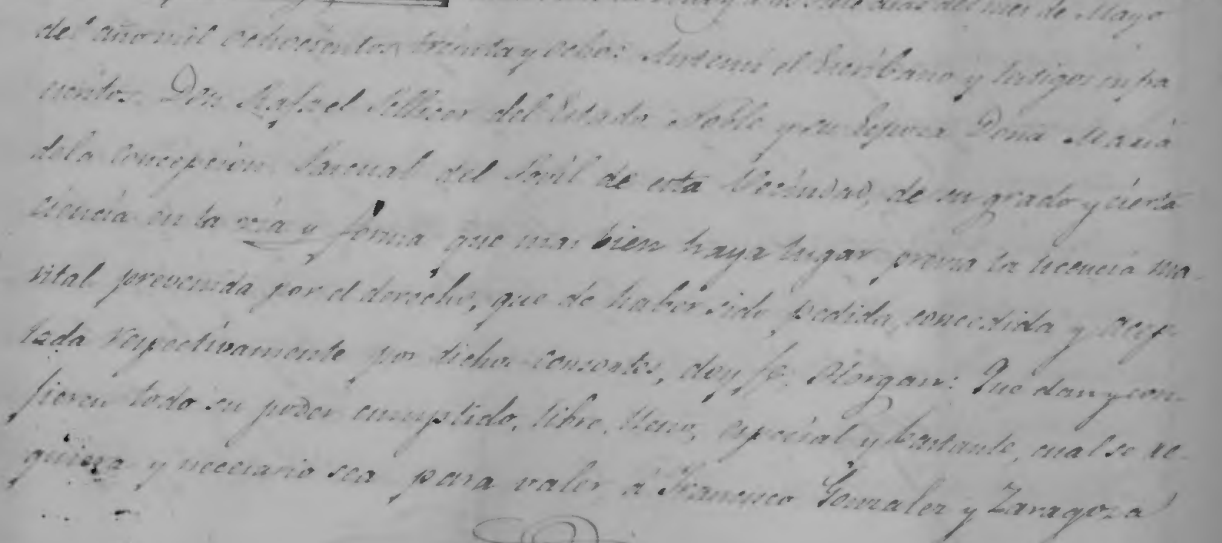 días del mes de Mayo
del año mil ochocientos treinta y ocho: Antemi el Escribano y testigos infra
critos. Don Rafael Pellicer del Estado Noble y su Esposa Doña Maria
dela Concepcion Pascual del Povíl de esta Vecindad, de su grado y cierta
ciencia en la vía y forma que mas bien haya lugar previa la licencia ma-
rital prevenida por el derecho, que de haber sido pedida, concedida y acep-
tada respectivamente por dichos consortes, doy fe, Otorgan: Que dan y con-
fieren todo su poder cumplido, libre, lleno, especial y bastante, cual se re-
quiera y necesario sea para valer á Francisco Gonzalez y Zaragoza